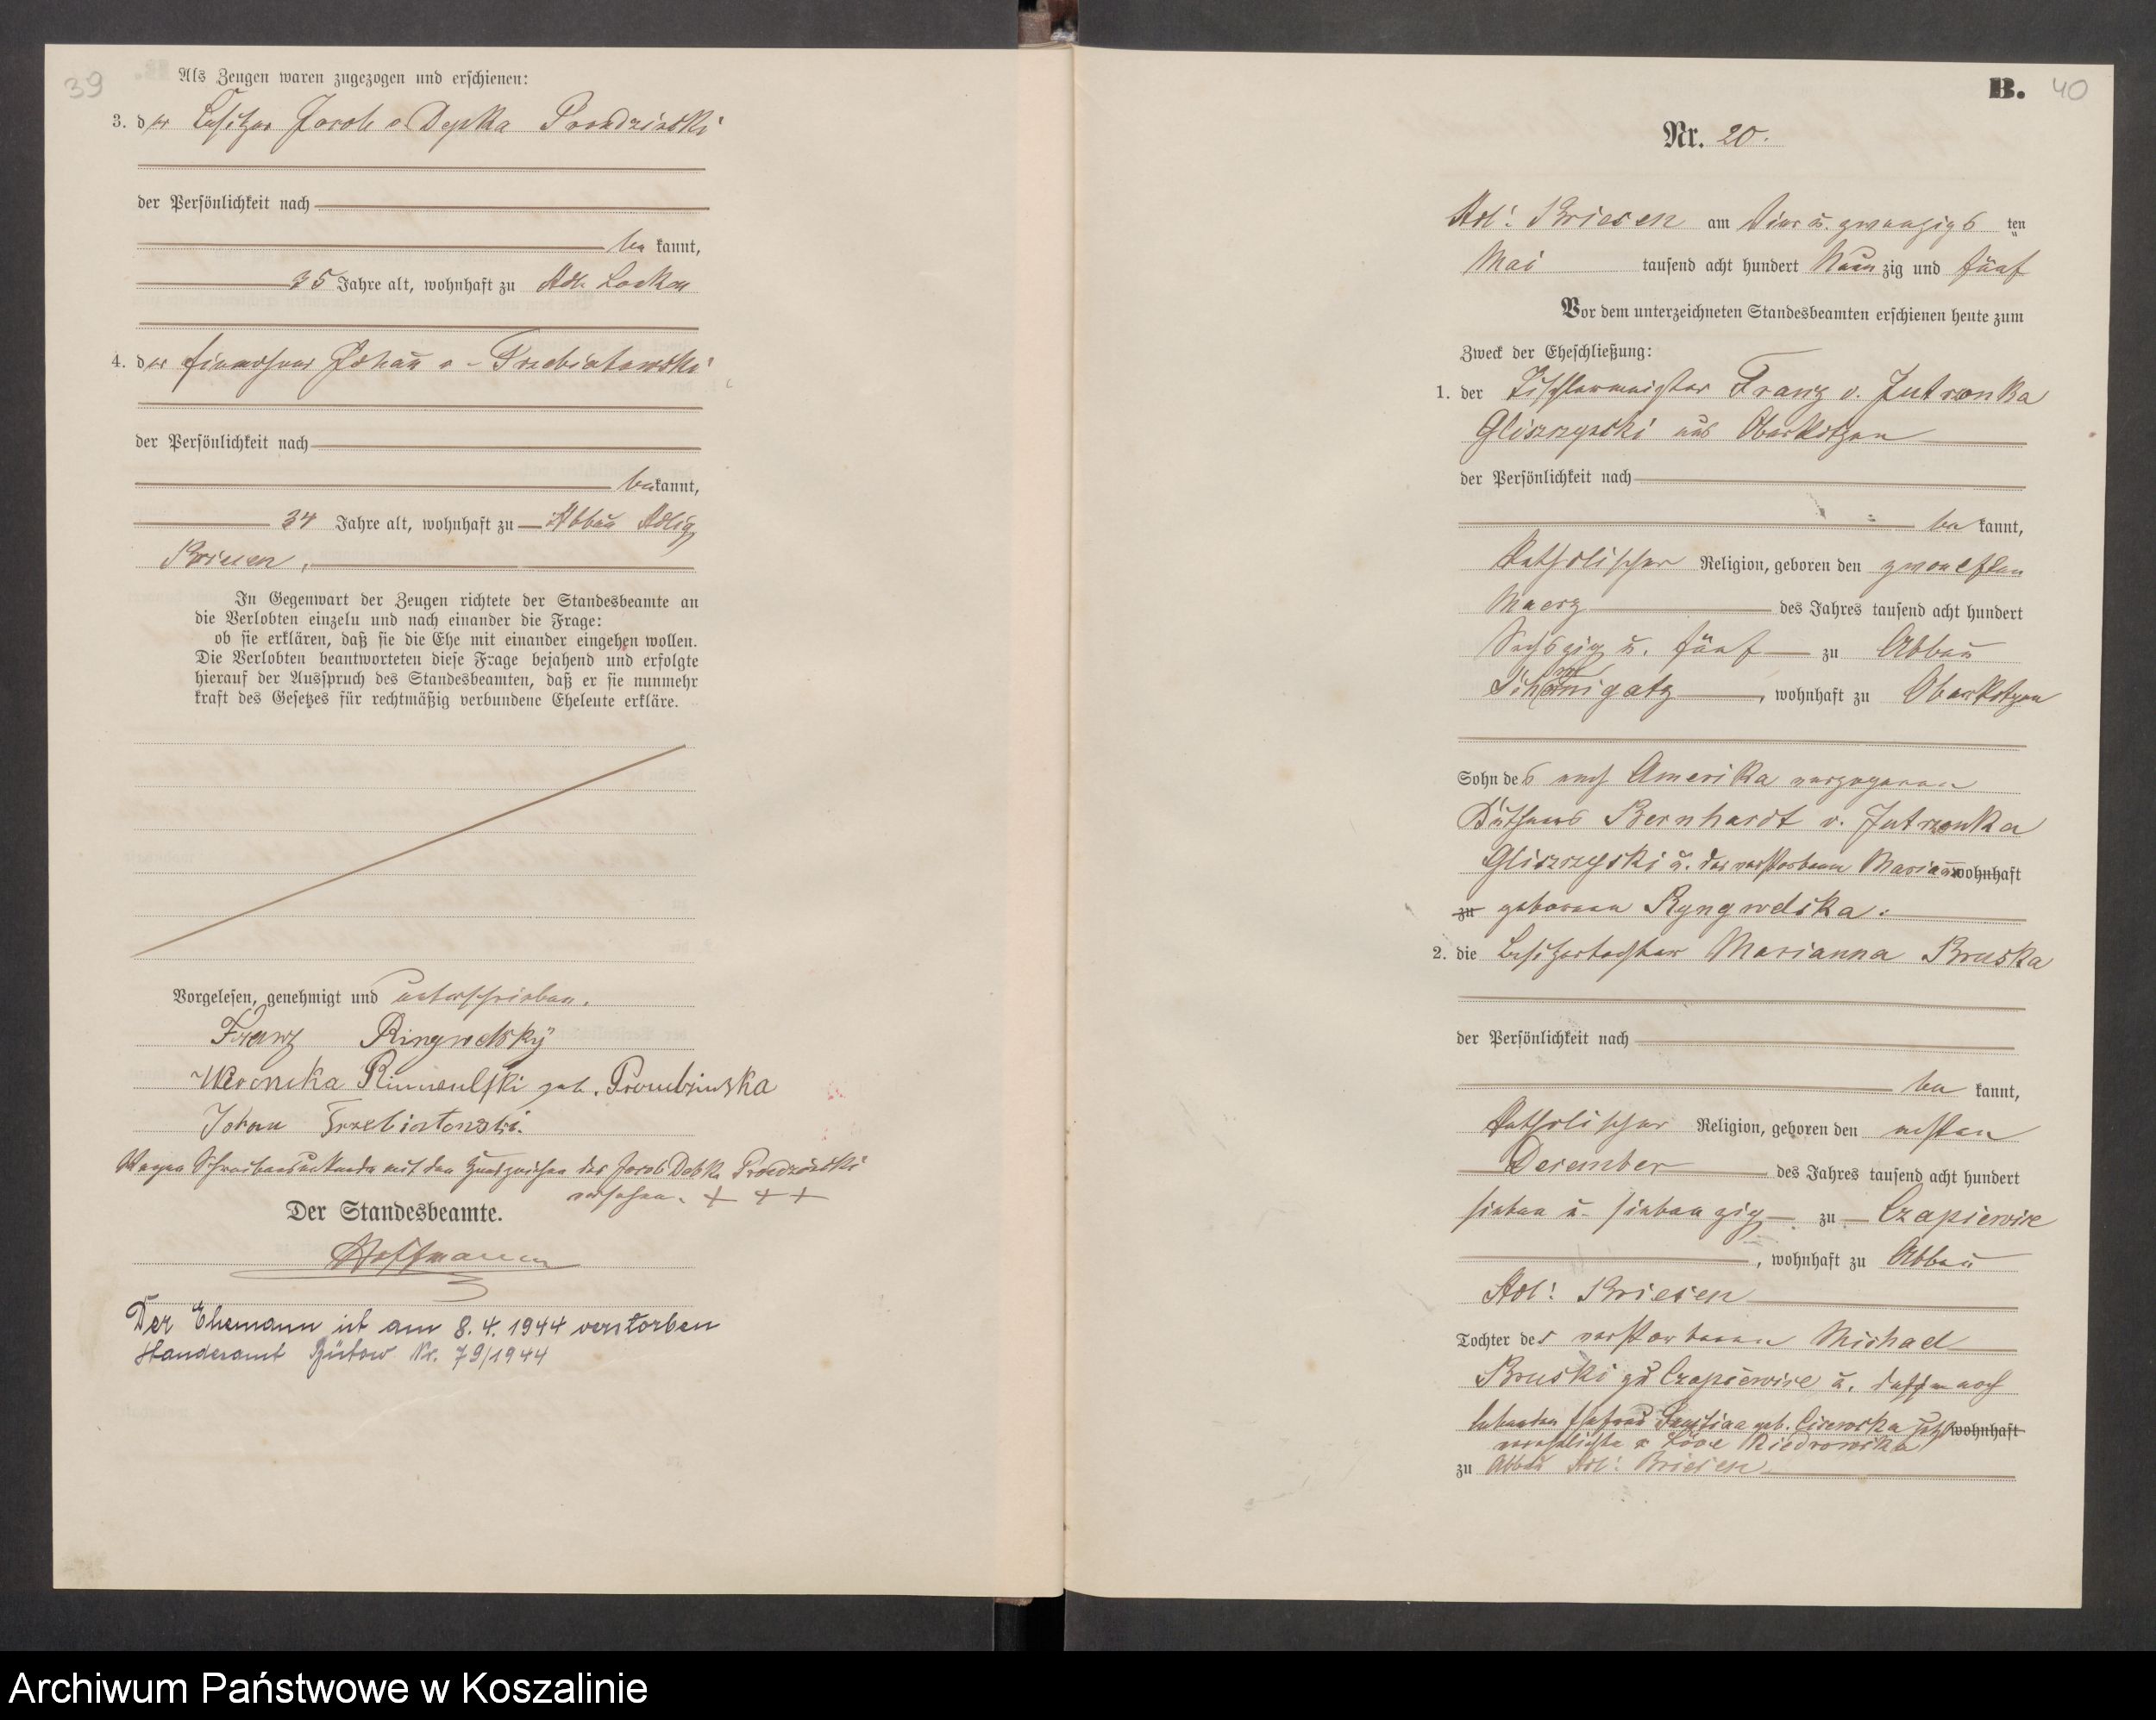 39
Als Zeugen waren zugezogen und erschienen:
3. der Besitzer Jacob v Depka Prondzinski
der Persönlichkeit nach
be kannt,
35 Jahre alt, wohnhaft zu Adl.
4. der Einwohner Johann v. Trzebiatowski
der Persönlichkeit nach
be kannt,
34 Jahre alt, wohnhaft zu Abbau Adlig
Briesen,
In Gegenwart der Zeugen richtete der Standesbeamte an
die Verlobten einzeln und nach einander die Frage:
ob sie erklären, daß sie die Ehe mit einander eingehen wollen.
Die Verlobten beantworteten diese Frage bejahend und erfolgte
hierauf der Ausspruch des Standesbeamten, daß er sie nunmehr
kraft des Gesetzes für rechtmäßig verbundene Eheleute erkläre.
Vorgelesen, genehmigt und unterschrieben.
Franz Ringwelsky
Weronika geb.
Johan Trzebiatowski.
Wegen Schreibensunkunde mit den Handzeichen des Jacob Debka Prondzinski
versehen. + + +
Der Standesbeamte.
Hoffmann
Der Ehemann ist am 8. 4. 1944 verstorben
Standesamt Bütow Nr. 79/1944
B. 40
Nr. 20.
Adl: Briesen am Vier u. zwanzigs ten
Mai tausend acht hundert Neun zig und fünf
Vor dem unterzeichneten Standesbeamten erschienen heute zum
Zweck der Eheschließung:
1. der Tischlermeister Franz v. Jutrzonka
Gliszczynski aus
der Persönlichkeit nach
be kannt,
katholischer Religion, geboren den zwoelften
Maerz des Jahres tausend acht hundert
Sechszig u. fünf zu Abbau
, wohnhaft zu
Sohn des nach Amerika verzogenen
Bernhardt v. Jutrzonka
u. der verstorbenen Mariann wohnhaft
zu geborenen Ryngwelska.
2. die Besitzertochter Marianna Bruska
der Persönlichkeit nach
be kannt,
katholischer Religion, geboren den achten
Dezember des Jahres tausend acht hundert
sieben u. siebenzig zu Czapiewice
, wohnhaft zu Abbau
Adl: Briesen
Tochter des verstorbenen Michael
Bruski zu Czapiewice u. dessen noch
lebenden Ehefrau geb. jetzt wohnhaft
verehelichte v
zu Abbau Adl: Briesen
Archiwum Państwowe w Koszalinie